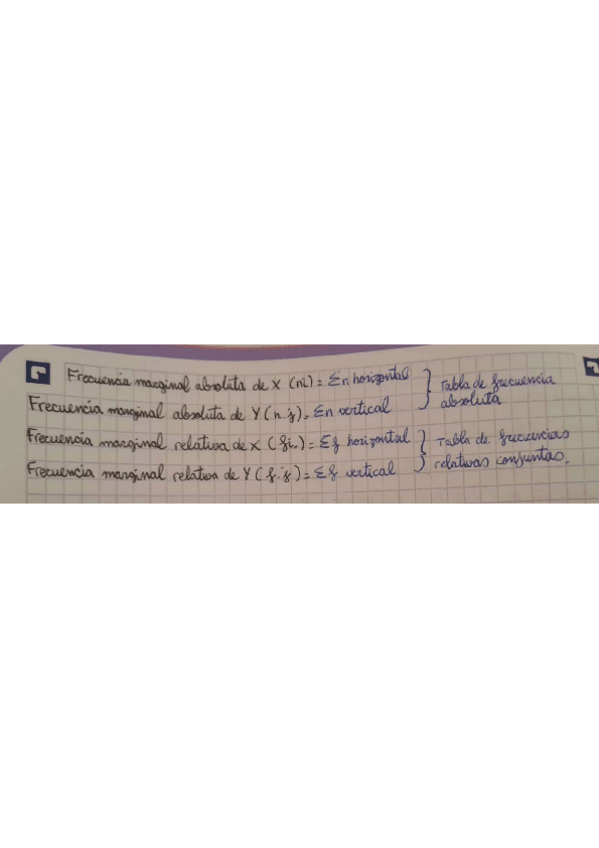 Frecuencia marginal absoluta de X (ni) = Σn horizontal } Tabla de frecuencia absoluta
Frecuencia marginal absoluta de Y (n.j) = Σn vertical
Frecuencia marginal relativa de X (fi.) = Σf horizontal } Tabla de frecuencias relativas conjuntas.
Frecuencia marginal relativa de Y (f.j.) = Σf vertical